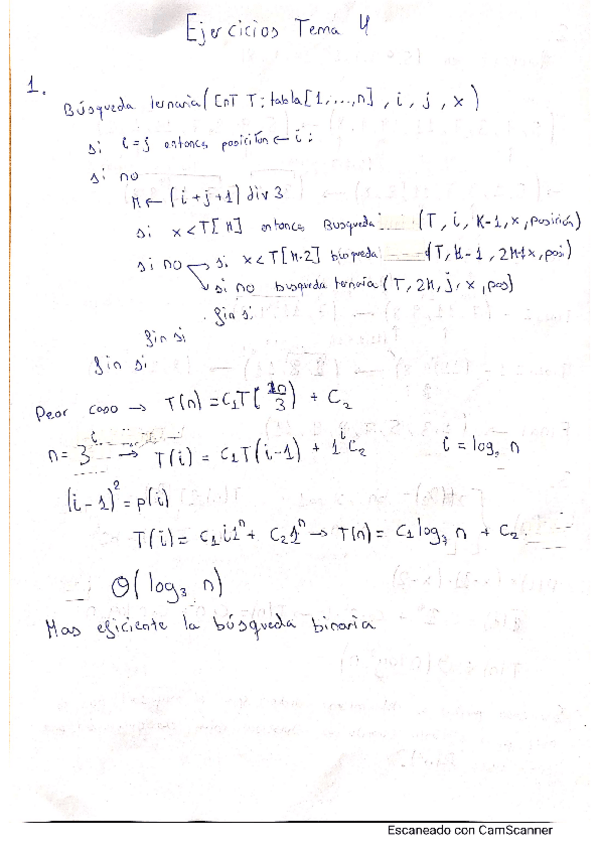 Ejercicios Tema 4
1.
Búsqueda ternaria( Ent T: tabla[1,...,n], i, j, x )
si i=j entonces posición ← i:
si no
M ← (i+j+1) div 3
si x<T[M] entonces Busqueda (T, i, K-1, x, posición)
si no si x<T[M·2] búsqueda (T, M-1, 2M+x, pos)
si no busqueda ternaria (T, 2M, j, x, pos)
fin si
fin si
fin si
Peor caso → T(n) = C₁T(n/3) + C₂
n = 3ⁱ → T(i) = C₁T(i-1) + 1ⁱC₂ i = log₃ n
(i-1)² = p(i)
T(i) = C₁i1ⁿ + C₂1ⁿ → T(n) = C₁log₃ n + C₂
O(log₃ n)
Mas eficiente la búsqueda binaria
Escaneado con CamScanner